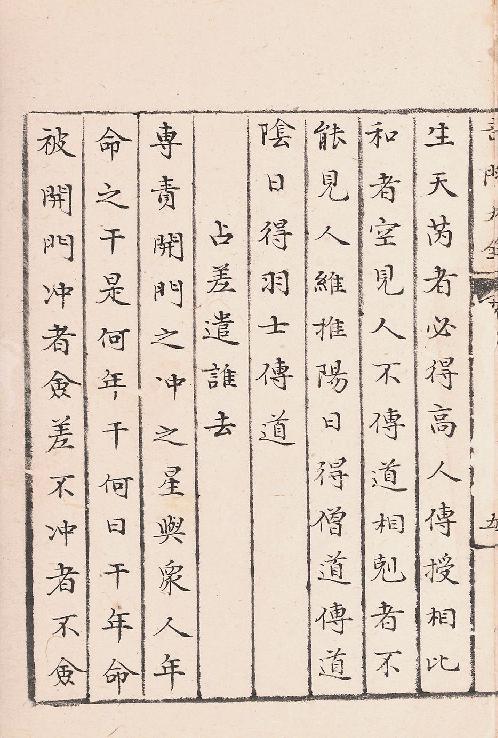 生天芮者必得高人傳授相比
和者空見人不傳道相剋者不
能見人維推陽日得僧道傳道
陰日得羽士傳道
占差遣誰去
專責開門之冲之星與眾人年
命之干是何年干何日干年命
被開門冲者僉差不冲者不僉